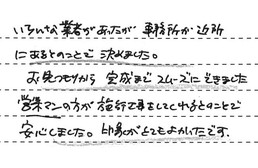 いろいろな業者があったが 事務所が近所
にあるとのことで 決めました。
お見つもりから 完成まで スムーズにできました
営業マンの方が 施行工事をしてくれるとのことで
安心しました。 印象がとてもよかったです。